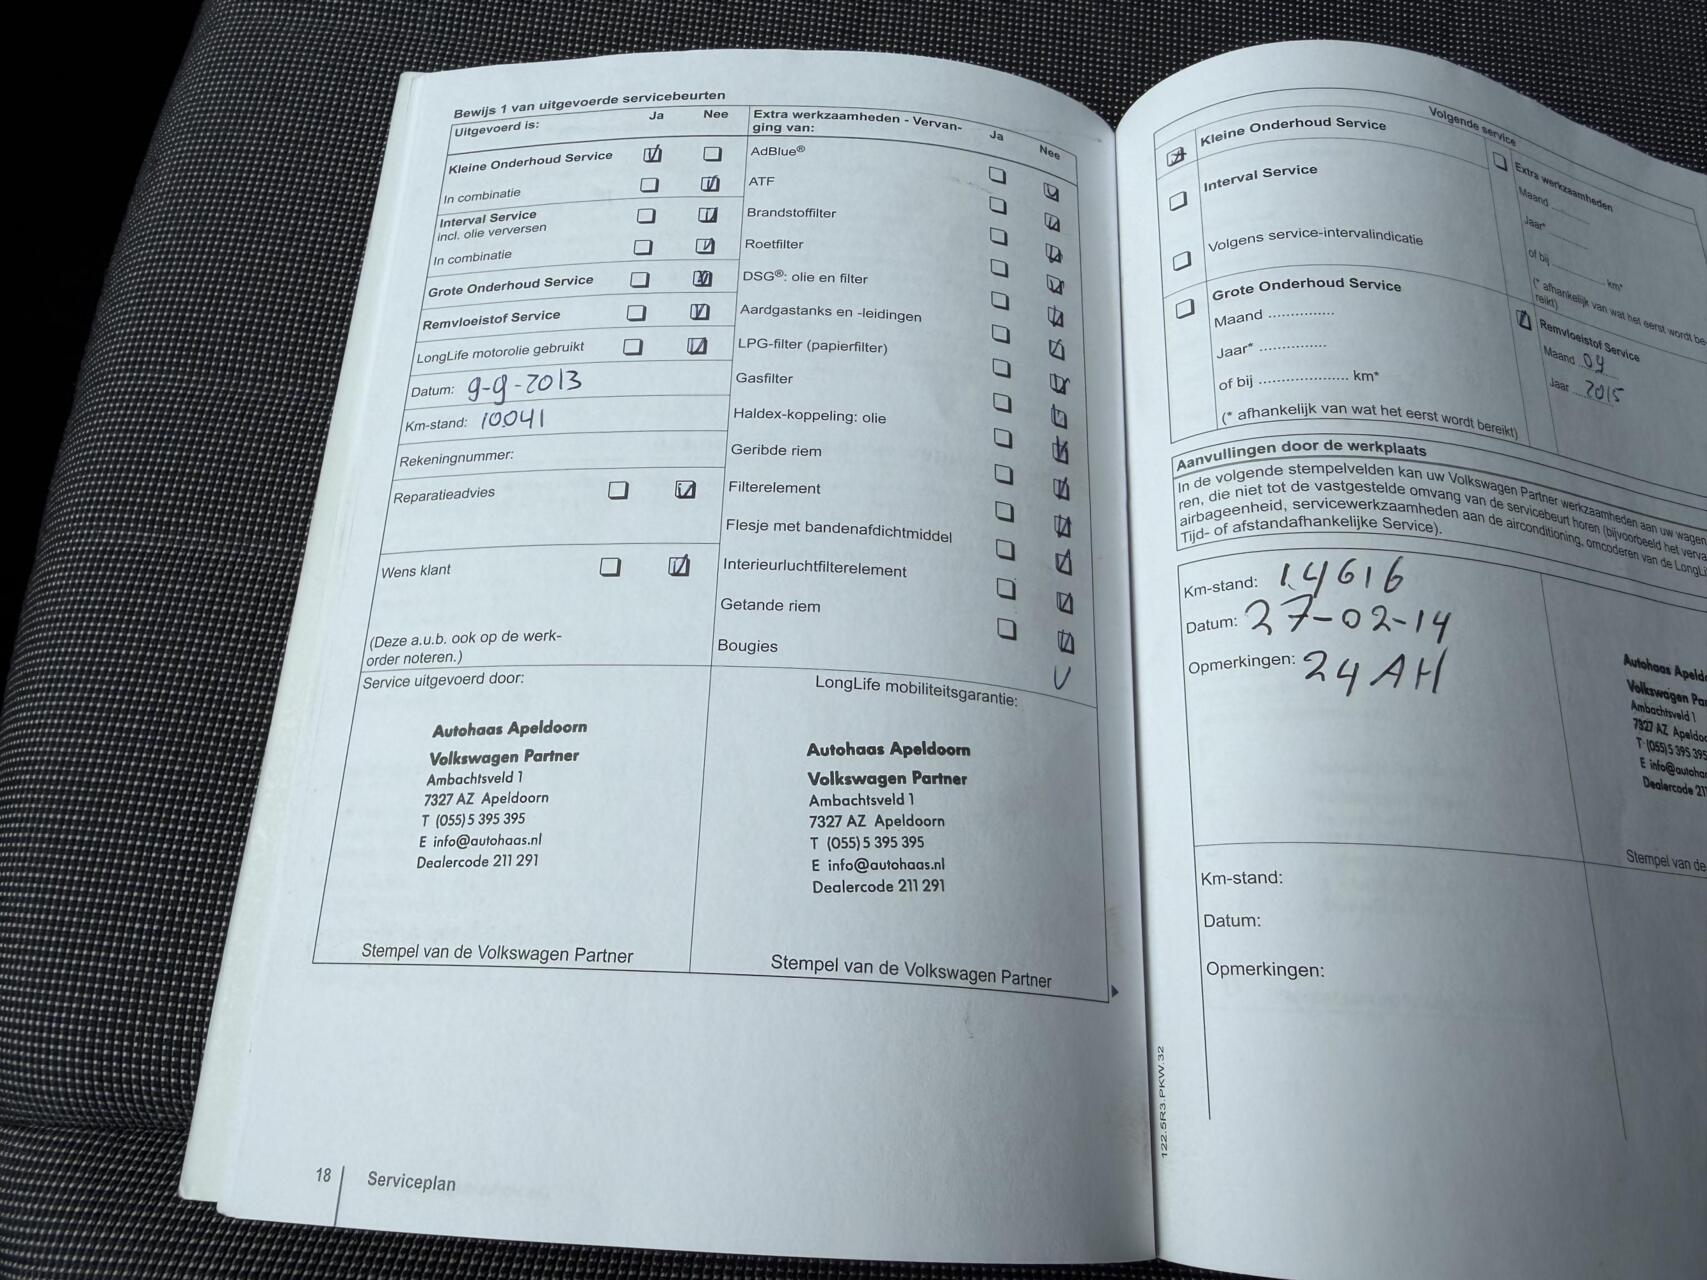 Bewijs 1 van uitgevoerde servicebeurten
Uitgevoerd is: Ja Nee
Kleine Onderhoud Service
In combinatie
Interval Service
incl. olie verversen
In combinatie
Grote Onderhoud Service
Remvloeistof Service
LongLife motorolie gebruikt
Datum: 9-9-2013
Km-stand: 10041
Rekeningnummer:
Reparatieadvies
Wens klant
(Deze a.u.b. ook op de werk-
order noteren.)
Extra werkzaamheden - Vervan-
ging van: Ja Nee
AdBlue®
ATF
Brandstoffilter
Roetfilter
DSG®: olie en filter
Aardgastanks en -leidingen
LPG-filter (papierfilter)
Gasfilter
Haldex-koppeling: olie
Geribde riem
Filterelement
Flesje met bandenafdichtmiddel
Interieurluchtfilterelement
Getande riem
Bougies
Service uitgevoerd door:
Autohaas Apeldoorn
Volkswagen Partner
Ambachtsveld 1
7327 AZ Apeldoorn
T (055) 5 395 395
E info@autohaas.nl
Dealercode 211 291
Stempel van de Volkswagen Partner
LongLife mobiliteitsgarantie:
Autohaas Apeldoorn
Volkswagen Partner
Ambachtsveld 1
7327 AZ Apeldoorn
T (055) 5 395 395
E info@autohaas.nl
Dealercode 211 291
Stempel van de Volkswagen Partner
18 Serviceplan
Volgende service
Kleine Onderhoud Service
Interval Service
Volgens service-intervalindicatie
Grote Onderhoud Service
Maand ...............
Jaar* ...............
of bij .................... km*
(* afhankelijk van wat het eerst wordt bereikt)
Extra werkzaamheden
Maand ..........
Jaar* ..........
of bij .............. km*
(* afhankelijk van wat het eerst wordt be-
reikt)
Remvloeistof Service
Maand 09
Jaar 2015
Aanvullingen door de werkplaats
In de volgende stempelvelden kan uw Volkswagen Partner werkzaamheden aan uw wagen
ren, die niet tot de vastgestelde omvang van de servicebeurt horen (bijvoorbeeld het verva
airbageenheid, servicewerkzaamheden aan de airconditioning, omcoderen van de LongLi
Tijd- of afstandafhankelijke Service).
Km-stand: 14616
Datum: 27-02-14
Opmerkingen: 24 AH
Autohaas Apeldo
Volkswagen Par
Ambachtsveld 1
7327 AZ Apeldoo
T (055) 5 395 395
E info@autohaa
Dealercode 211
Stempel van de
Km-stand:
Datum:
Opmerkingen:
122.5R3.PKW.32